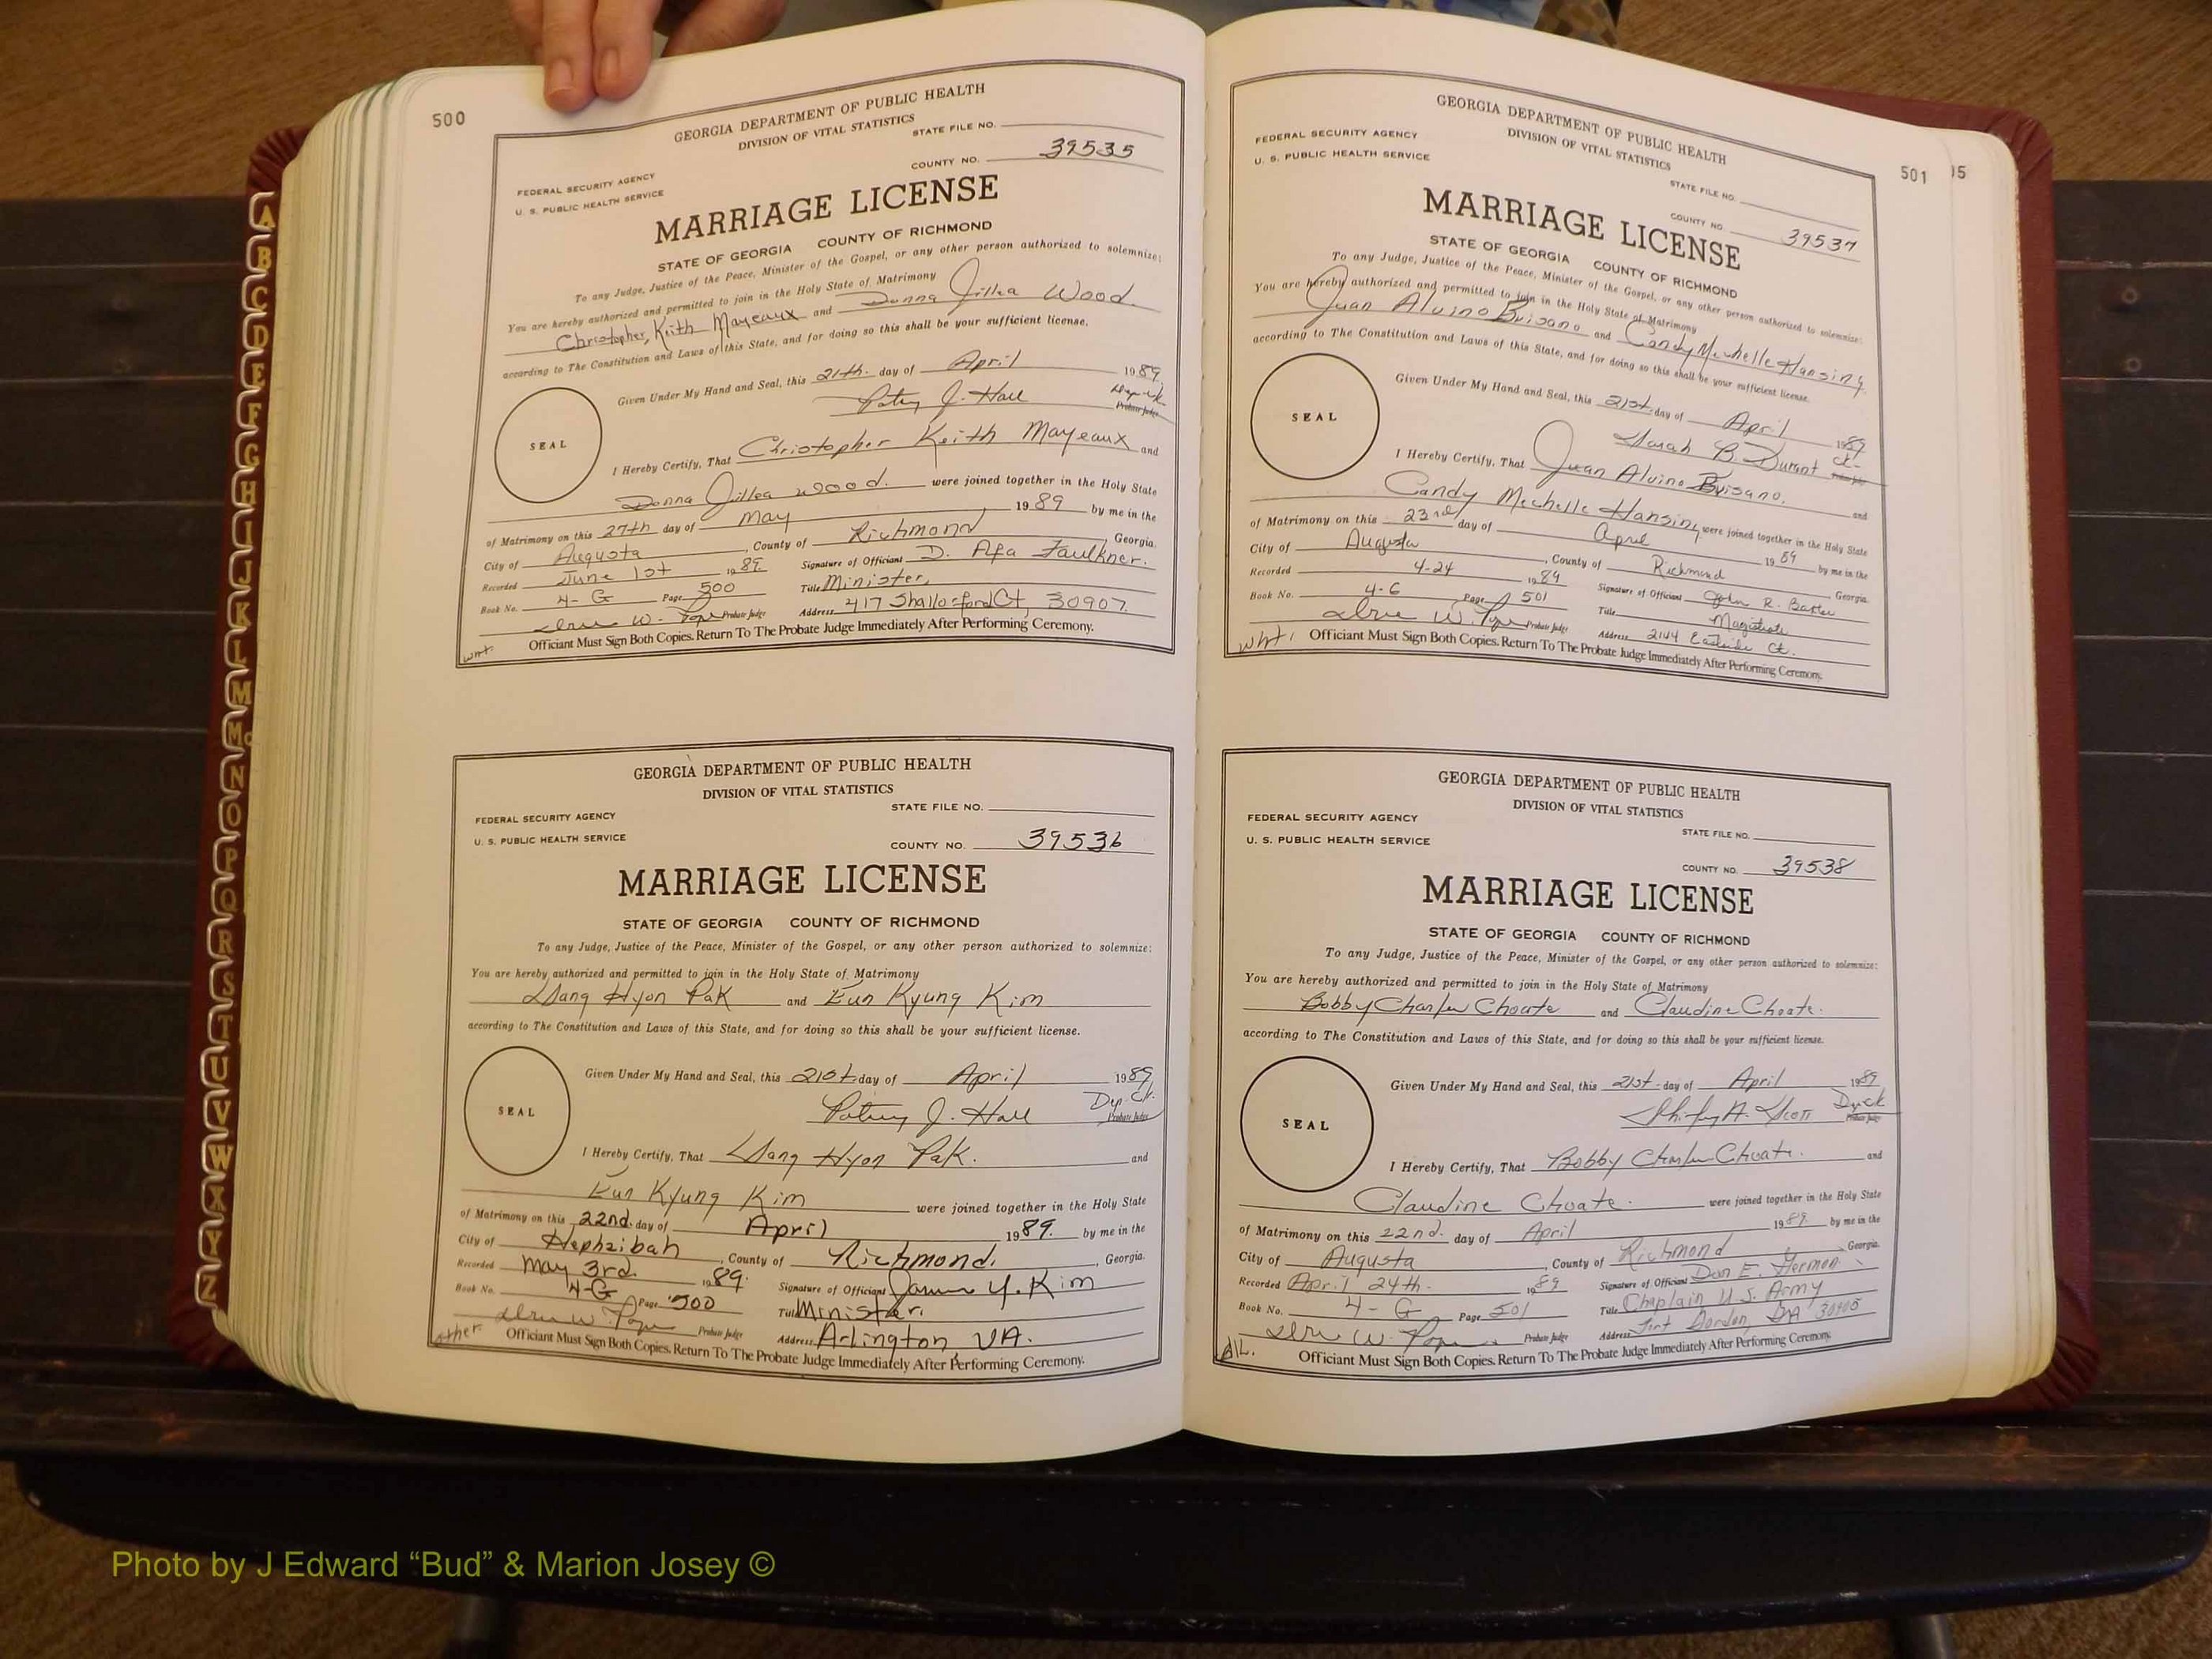 500
GEORGIA DEPARTMENT OF PUBLIC HEALTH
DIVISION OF VITAL STATISTICS
STATE FILE NO.
COUNTY NO. 39535
FEDERAL SECURITY AGENCY
U. S. PUBLIC HEALTH SERVICE
MARRIAGE LICENSE
STATE OF GEORGIA COUNTY OF RICHMOND
To any Judge, Justice of the Peace, Minister of the Gospel, or any other person authorized to solemnize:
You are hereby authorized and permitted to join in the Holy State of Matrimony
Christopher Keith Mayeaux and Donna Jillea Wood.
according to The Constitution and Laws of this State, and for doing so this shall be your sufficient license.
Given Under My Hand and Seal, this 21th. day of April 1989.
J. Hall
Probate Judge
SEAL
I Hereby Certify, That Christopher Keith Mayeaux and
Donna Jillea Wood. were joined together in the Holy State
of Matrimony on this 27th day of May 1989 by me in the
City of Augusta, County of Richmond, Georgia.
Recorded June 1st 1989. Signature of Officiant D. Faulkner.
Book No. 4-G Page 500 Title Minister,
W. Pope Probate Judge Address 417 Shallowford Ct, 30907.
Officiant Must Sign Both Copies. Return To The Probate Judge Immediately After Performing Ceremony.
wht.
GEORGIA DEPARTMENT OF PUBLIC HEALTH
DIVISION OF VITAL STATISTICS
STATE FILE NO.
FEDERAL SECURITY AGENCY
U. S. PUBLIC HEALTH SERVICE
COUNTY NO. 39536
MARRIAGE LICENSE
STATE OF GEORGIA COUNTY OF RICHMOND
To any Judge, Justice of the Peace, Minister of the Gospel, or any other person authorized to solemnize:
You are hereby authorized and permitted to join in the Holy State of Matrimony
Sang Hyon Pak and Eun Kyung Kim
according to The Constitution and Laws of this State, and for doing so this shall be your sufficient license.
Given Under My Hand and Seal, this 21st day of April 1989
J. Hall Dep. Ck.
Probate Judge
SEAL
I Hereby Certify, That Sang Hyon Pak. and
Eun Kyung Kim were joined together in the Holy State
of Matrimony on this 22nd. day of April 1989. by me in the
City of Hephzibah, County of Richmond, Georgia.
Recorded May 3rd. 1989. Signature of Officiant Y. Kim
Book No. 4-G Page 500 Title Minister.
W. Pope Probate Judge Address Arlington VA.
other Officiant Must Sign Both Copies. Return To The Probate Judge Immediately After Performing Ceremony.
501
05
GEORGIA DEPARTMENT OF PUBLIC HEALTH
DIVISION OF VITAL STATISTICS
FEDERAL SECURITY AGENCY
U. S. PUBLIC HEALTH SERVICE
STATE FILE NO.
COUNTY NO. 39537
MARRIAGE LICENSE
STATE OF GEORGIA COUNTY OF RICHMOND
To any Judge, Justice of the Peace, Minister of the Gospel, or any other person authorized to solemnize:
You are hereby authorized and permitted to join in the Holy State of Matrimony
Juan Alvino Brisano and Candy Mechelle Hansing
according to The Constitution and Laws of this State, and for doing so this shall be your sufficient license.
Given Under My Hand and Seal, this 21st day of April 1989
Sarah B. Durant Ck.
SEAL
I Hereby Certify, That Juan Alvino Brisano. and
Candy Mechelle Hansing were joined together in the Holy State
of Matrimony on this 23rd day of April 1989 by me in the
City of Augusta, County of Richmond Georgia.
Recorded 4-24 1989 Signature of Officiant John R. Baxter
Book No. 4-G Page 501 Title Magistrate
W. Pope Probate Judge Address 2144 Eastside Ct.
wht. Officiant Must Sign Both Copies. Return To The Probate Judge Immediately After Performing Ceremony.
GEORGIA DEPARTMENT OF PUBLIC HEALTH
DIVISION OF VITAL STATISTICS
FEDERAL SECURITY AGENCY
U. S. PUBLIC HEALTH SERVICE
STATE FILE NO.
COUNTY NO. 39538
MARRIAGE LICENSE
STATE OF GEORGIA COUNTY OF RICHMOND
To any Judge, Justice of the Peace, Minister of the Gospel, or any other person authorized to solemnize:
You are hereby authorized and permitted to join in the Holy State of Matrimony
Bobby Charles Choate and Claudine Choate.
according to The Constitution and Laws of this State, and for doing so this shall be your sufficient license.
Given Under My Hand and Seal, this 21st. day of April 1989
Shirley A. Scott Dp ck
Probate Judge
SEAL
I Hereby Certify, That Bobby Charles Choate. and
Claudine Choate. were joined together in the Holy State
of Matrimony on this 22nd. day of April 1989. by me in the
City of Augusta, County of Richmond Georgia.
Recorded April 24th. 1989 Signature of Officiant Don E. Hermon
Book No. 4-G Page 501 Title Chaplain U.S. Army
W. Pope Probate Judge Address Fort Gordon, GA 30905
Officiant Must Sign Both Copies. Return To The Probate Judge Immediately After Performing Ceremony.
A
B
C
D
E
F
G
H
I
J
K
L
M
Mc
N
O
P
Q
R
S
T
U
V
W
X
Y
Z
Photo by J Edward “Bud” & Marion Josey ©